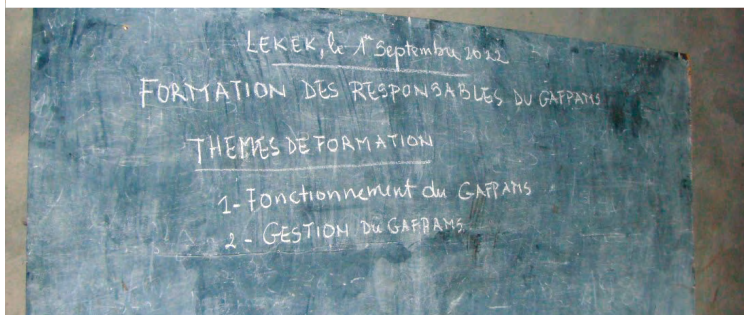 LEKEK, le 1er Septembre 2022
FORMATION DES RESPONSABLES DU GAFPAMS
THEMES DE FORMATION
1- Fonctionnement du GAFPAMS
2 - GESTION DU GAFPAMS